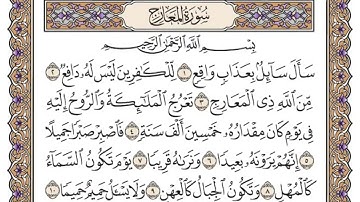 سُورَةُ المَعَارِجِ
بِسْمِ اللَّهِ الرَّحْمَٰنِ الرَّحِيمِ
سَأَلَ سَآئِلٌۢ بِعَذَابٍ وَاقِعٍ ١ لِّلْكَٰفِرِينَ لَيْسَ لَهُۥ دَافِعٌ ٢
مِّنَ ٱللَّهِ ذِى ٱلْمَعَارِجِ ٣ تَعْرُجُ ٱلْمَلَٰٓئِكَةُ وَٱلرُّوحُ إِلَيْهِ
فِى يَوْمٍ كَانَ مِقْدَارُهُۥ خَمْسِينَ أَلْفَ سَنَةٍ ٤ فَٱصْبِرْ صَبْرًا جَمِيلًا
٥ إِنَّهُمْ يَرَوْنَهُۥ بَعِيدًا ٦ وَنَرَىٰهُ قَرِيبًا ٧ يَوْمَ تَكُونُ ٱلسَّمَآءُ
كَٱلْمُهْلِ ٨ وَتَكُونُ ٱلْجِبَالُ كَٱلْعِهْنِ ٩ وَلَا يَسْـَٔلُ حَمِيمٌ حَمِيمًا ١٠